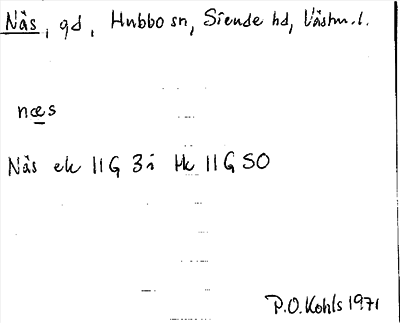 Näs, gd, Hubbo sn, Siende hd, Västm.l.
næs
Näs ek 11G 3i Hk 11G SO
P.O. Kohls 1971